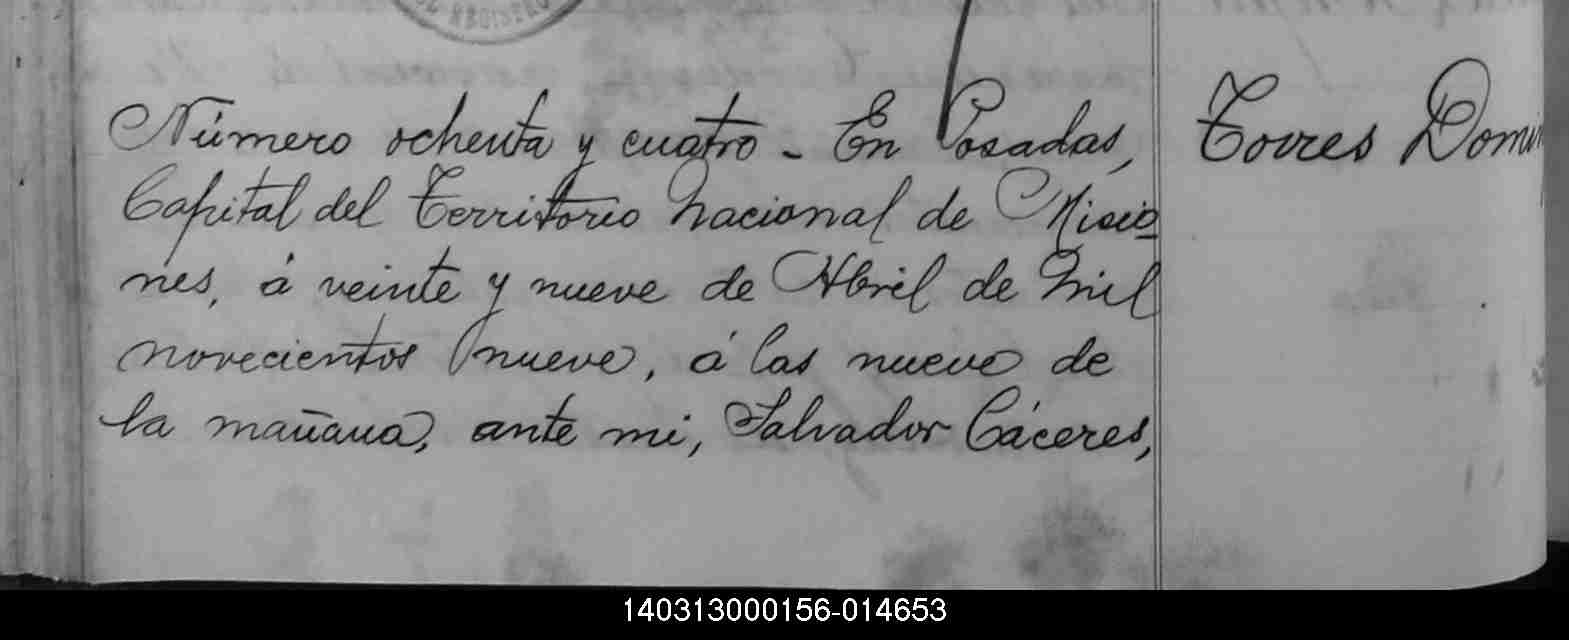 Número ochenta y cuatro - En Posadas,
Capital del Territorio Nacional de Misio
nes, á veinte y nueve de Abril de mil
novecientos nueve, á las nueve de
la mañana, ante mi, Salvador Cáceres,
Torres Domin
140313000156-014653